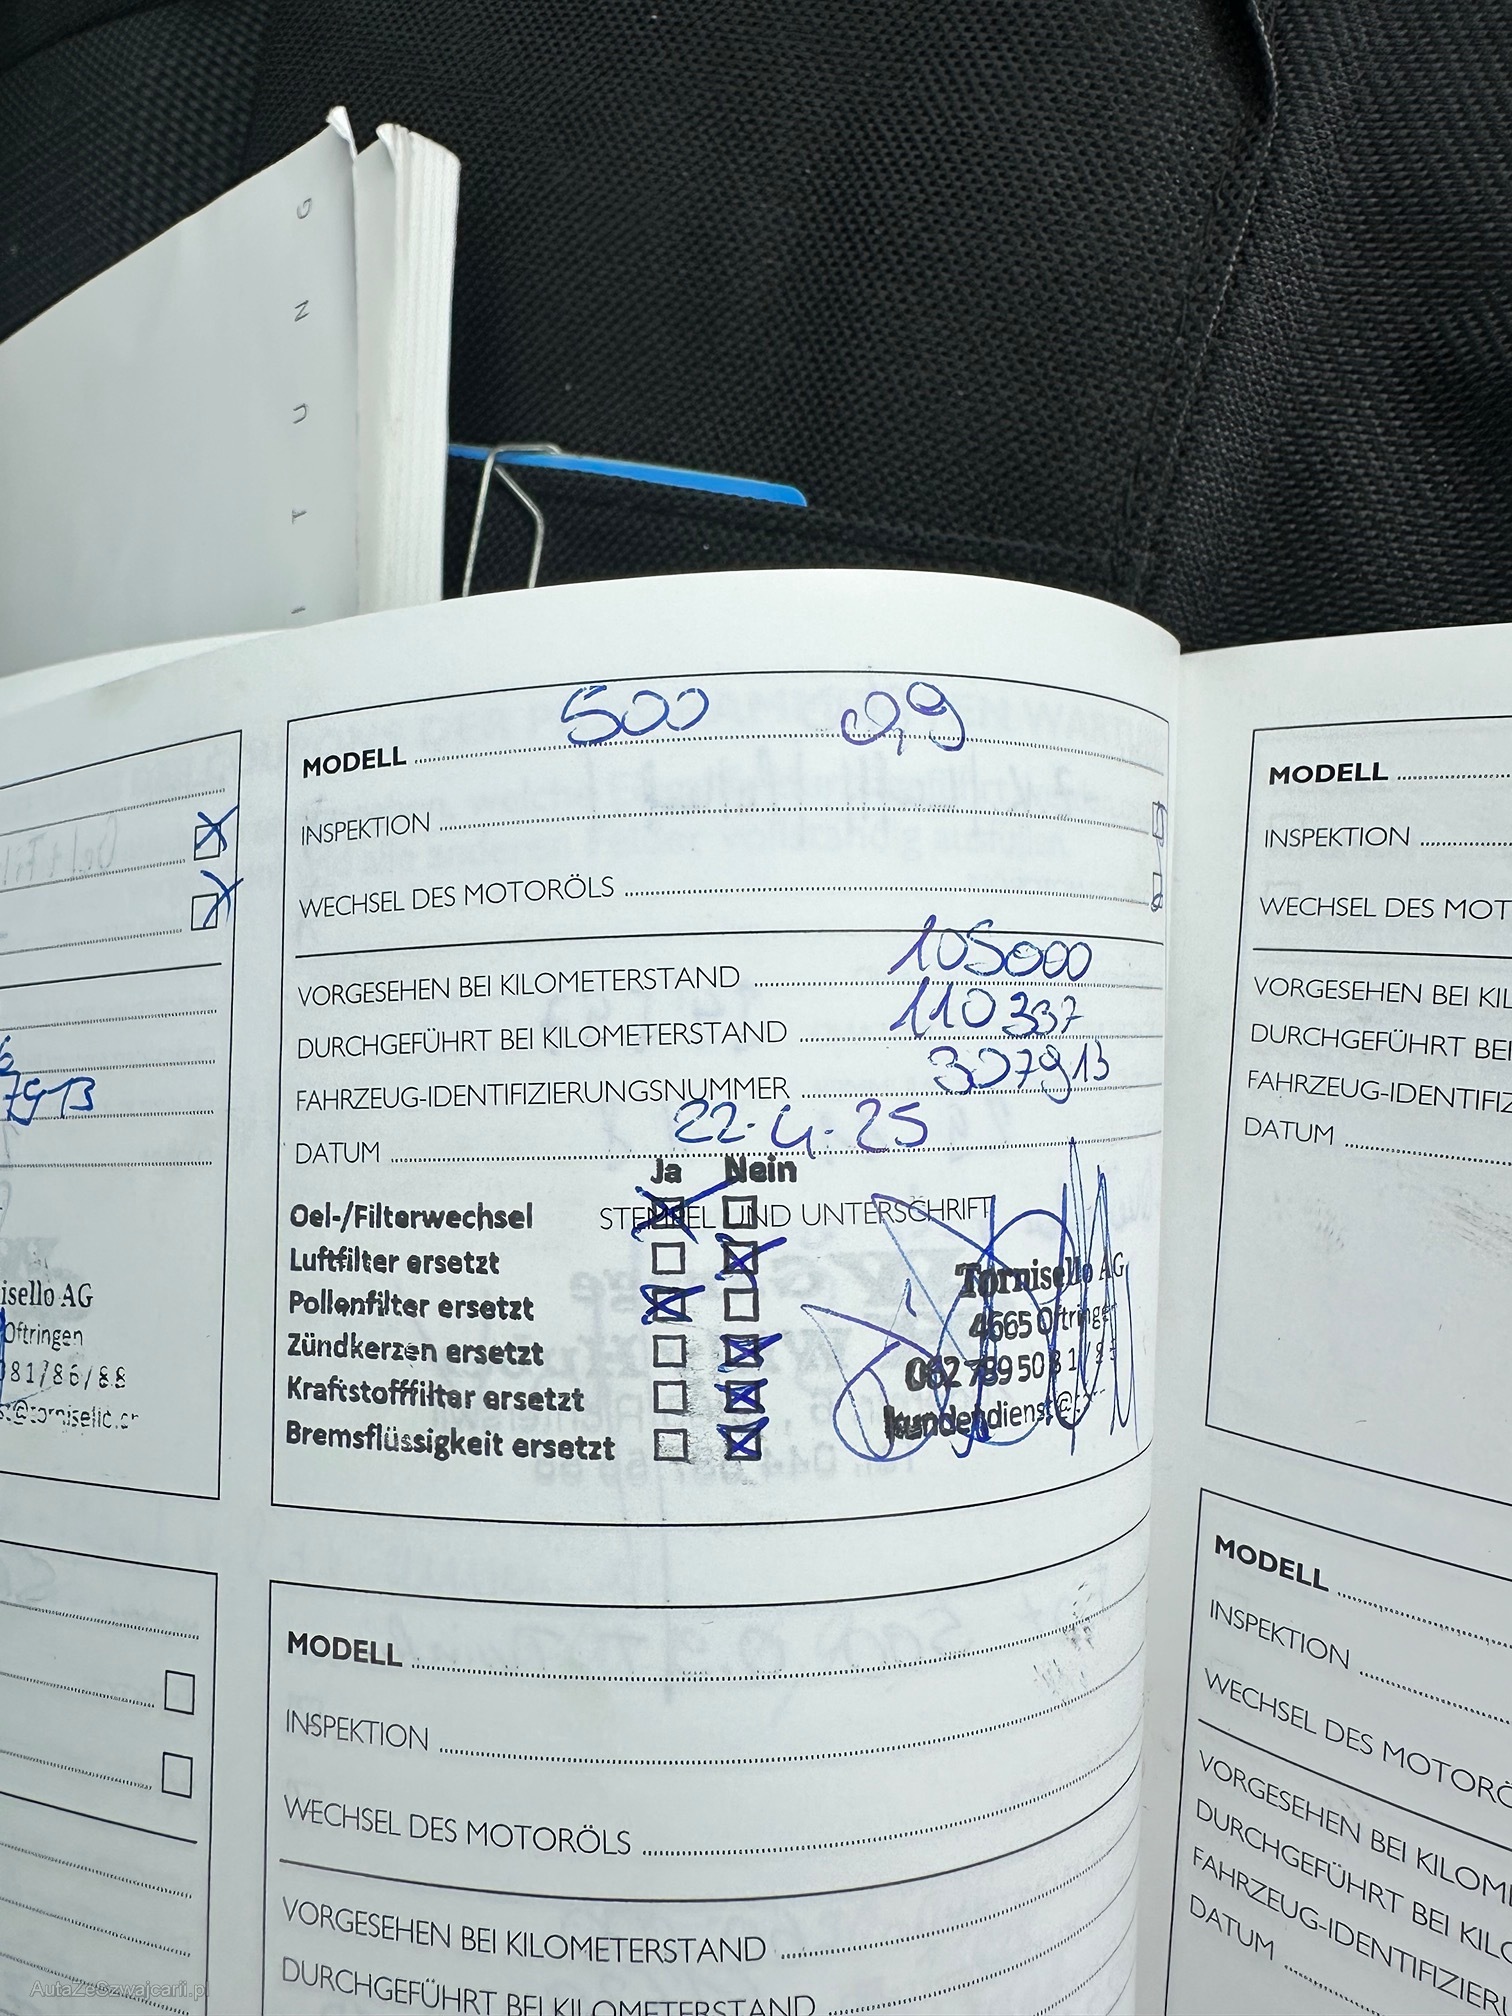 I T U N G
MODELL 500 0,9
INSPEKTION
WECHSEL DES MOTORÖLS
VORGESEHEN BEI KILOMETERSTAND 105000
DURCHGEFÜHRT BEI KILOMETERSTAND 110337
FAHRZEUG-IDENTIFIZIERUNGSNUMMER 307913
DATUM 22.4.25
Ja Nein
STEMPEL UND UNTERSCHRIFT
Oel-/Filterwechsel
Luftfilter ersetzt
Pollenfilter ersetzt
Zündkerzen ersetzt
Kraftstofffilter ersetzt
Bremsflüssigkeit ersetzt
Tornisello AG
4665 Oftringen
062 789 50 81/85
kundendienst@
7913
isello AG
Oftringen
081/86/88
st@tornisello.ch
MODELL
INSPEKTION
WECHSEL DES MOTORÖLS
VORGESEHEN BEI KILOMETERSTAND
DURCHGEFÜHRT BEI KILOMETERSTAND
MODELL
INSPEKTION
WECHSEL DES MOT
VORGESEHEN BEI KIL
DURCHGEFÜHRT BEI
FAHRZEUG-IDENTIFIZ
DATUM
MODELL
INSPEKTION
WECHSEL DES MOTORÖ
VORGESEHEN BEI KILOM
DURCHGEFÜHRT BEI KILO
FAHRZEUG-IDENTIFIZIER
DATUM
AutaZeSzwajcarii.pl